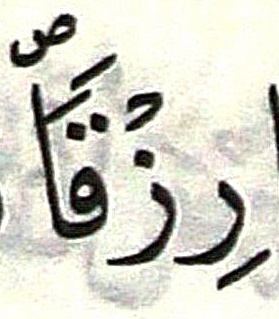 رِزْقًا ۙ ص